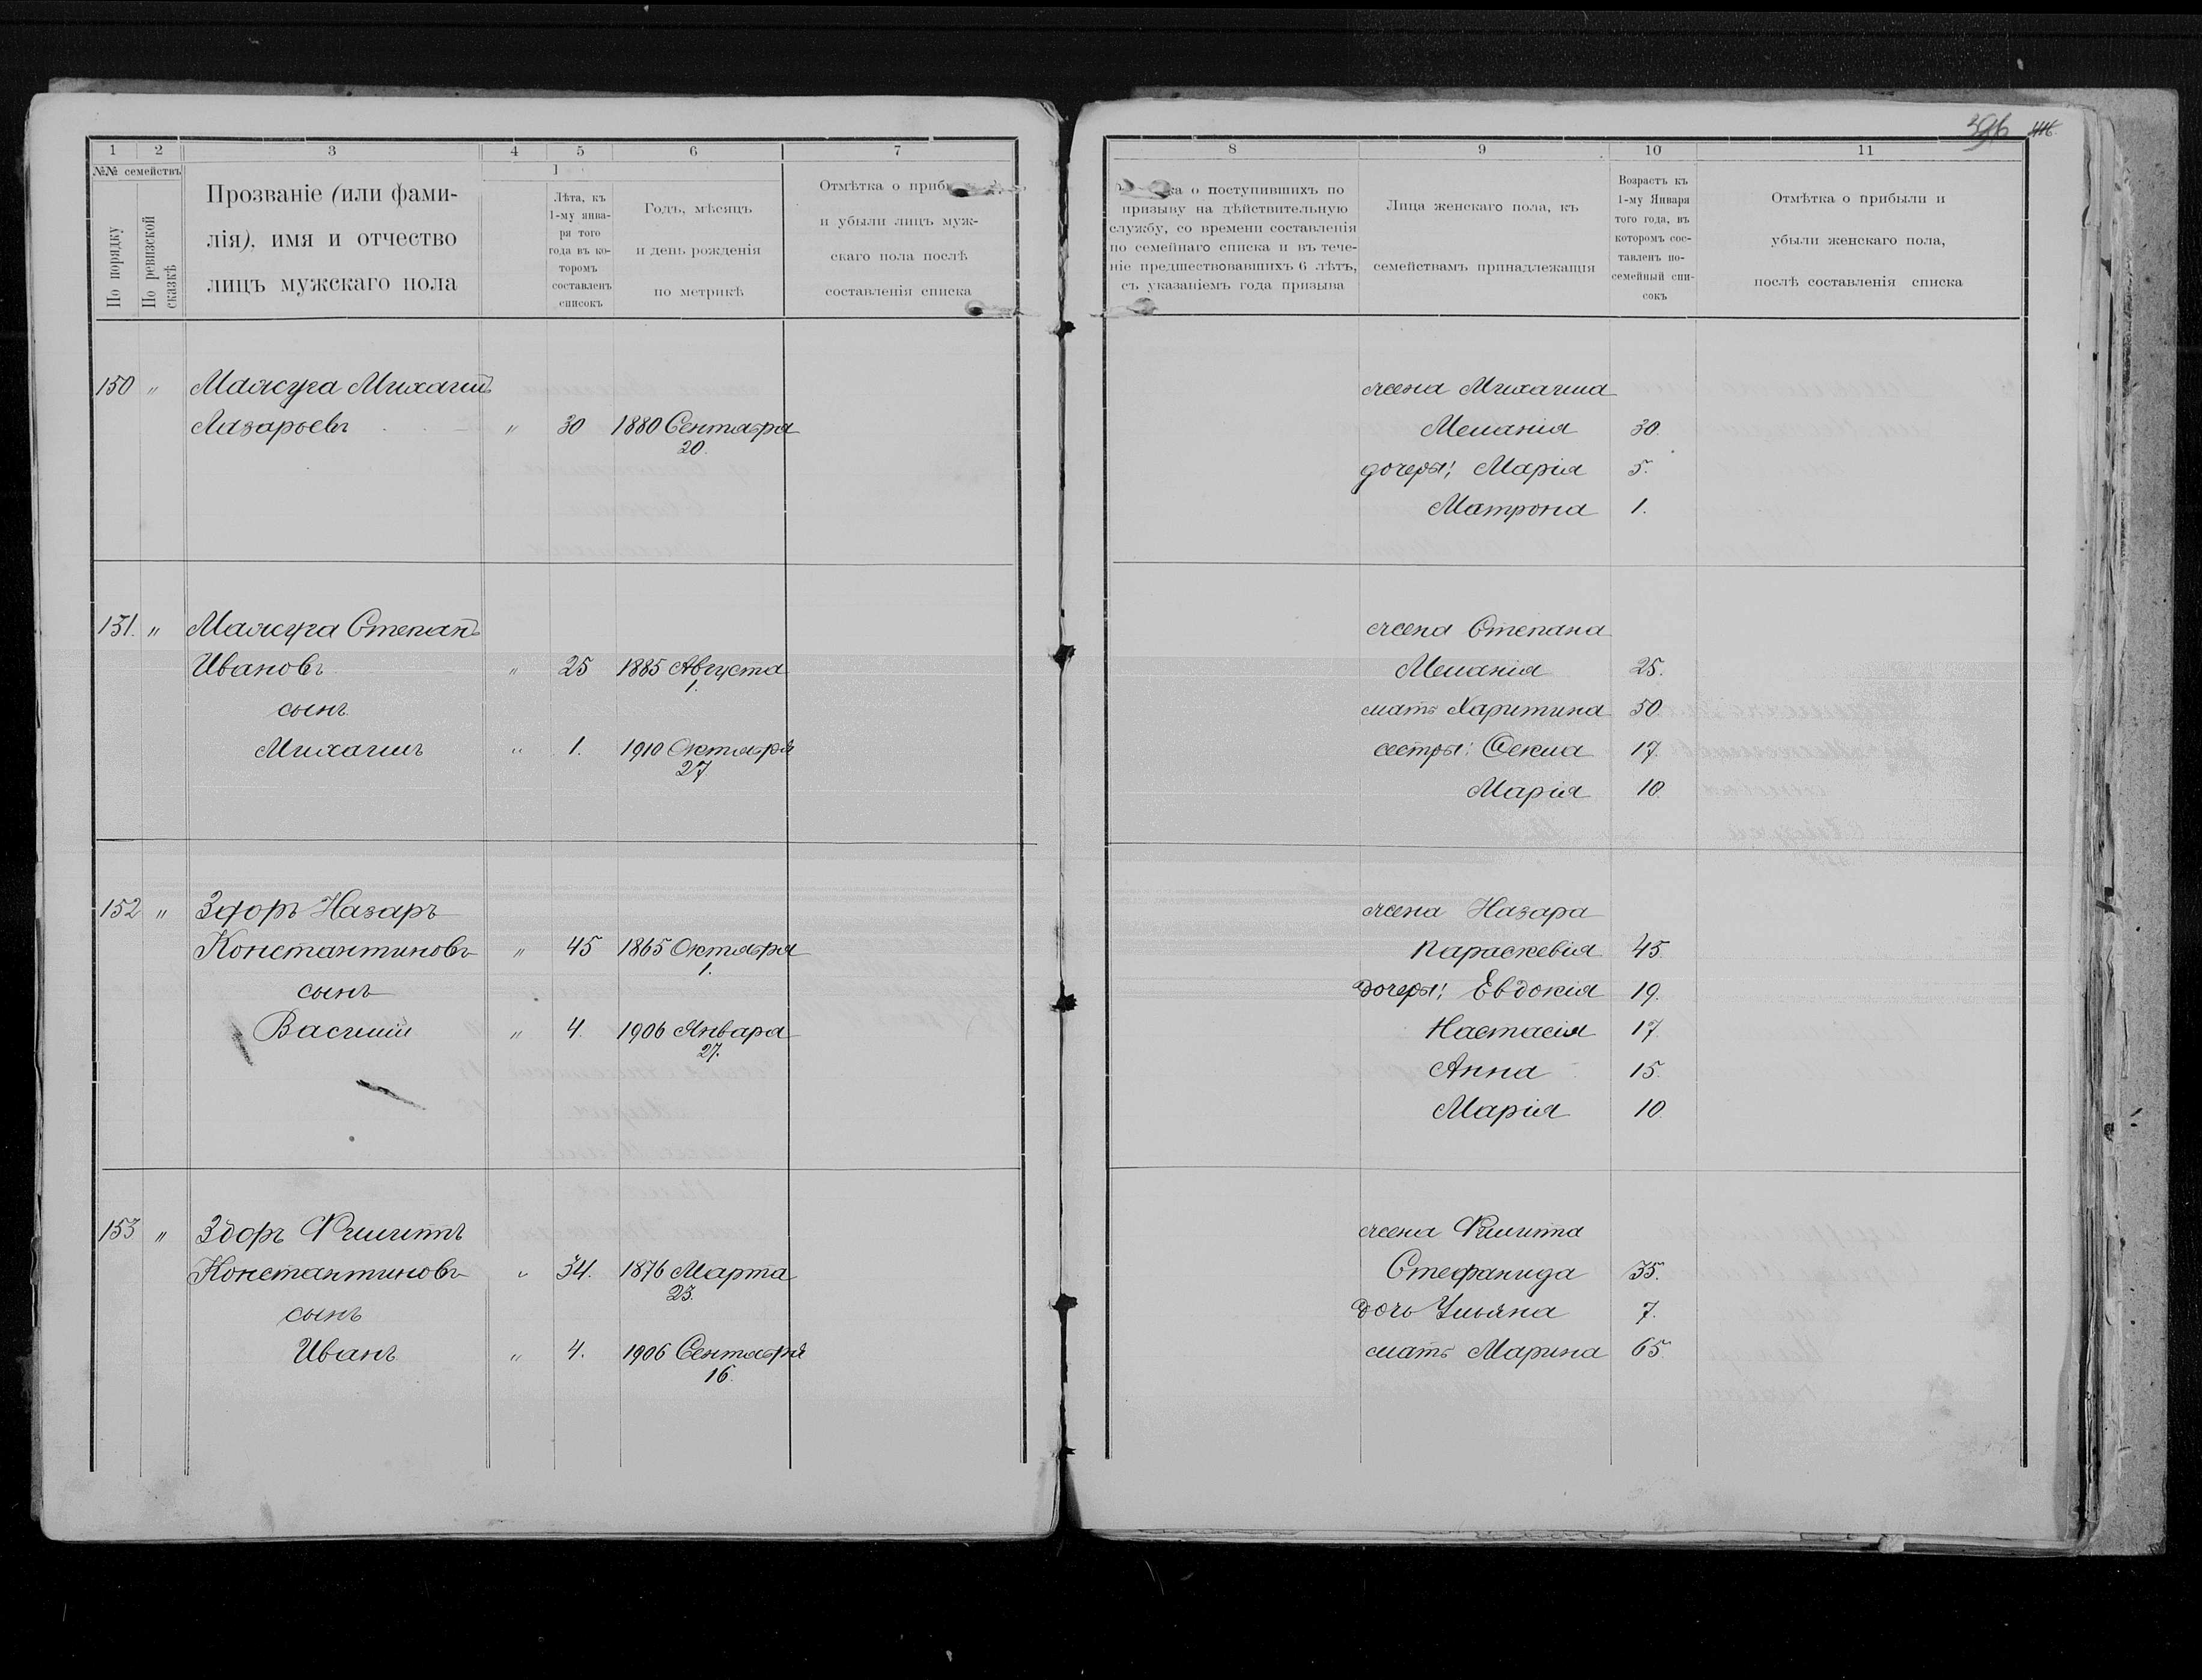 396
1 2 3 4 5 6 7
№№ семействъ
По порядку
По ревизской сказкѣ
Прозваніе (или фами-
лія), имя и отчество
лицъ мужскаго пола
1
Лѣта, къ
1-му янва-
ря того
года въ ко-
торомъ
составленъ
списокъ
Годъ, мѣсяцъ
и день рожденія
по метрикѣ
Отмѣтка о приб
и убыли лицъ муж-
скаго пола послѣ
составленія списка
150 " Мажуга Михаилъ
Лазарьевъ " 30 1880 Сентября
20.
151. " Мажуга Степанъ
Ивановъ " 25 1885 Августа
1.
сынъ
Михаилъ " 1. 1910 Октября
27
152 " Здоръ Назаръ
Константиновъ " 45 1865 Октября
1.
сынъ
Василій " 4. 1906 Января
27.
153 " Здоръ Филиппъ
Константиновъ " 34. 1876 Марта
23.
сынъ
Иванъ " 4. 1906 Сентября
16.
8 9 10 11
ка о поступившихъ по
призыву на дѣйствительную
службу, со времени составленія
по семейнаго списка и въ тече-
ніе предшествовавшихъ 6 лѣтъ,
съ указаніемъ года призыва
Лица женскаго пола, къ
семействамъ принадлежащія
Возрастъ къ
1-му Января
того года, въ
которомъ сос-
тавленъ по-
семейный спи-
сокъ
Отмѣтка о прибыли и
убыли женскаго пола,
послѣ составленія списка
жена Михаила
Меланія 30.
дочери: Марія 5.
Матрона 1.
жена Степана
Меланія 25.
мать Харитина 50
сестры: Фекла 17.
Марія 10
жена Назара
Параскевія 45.
дочери: Евдокія 19.
Настасія 17
Анна 15.
Марія 10.
жена Филиппа
Стефанида 35.
дочь Ульяна 7.
мать Марина 65.